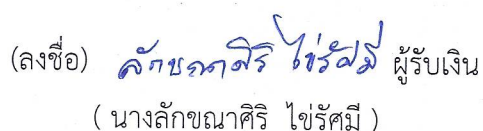 (ลงชื่อ) ลักขณาศิริ ไข่รัศมี ผู้รับเงิน
( นางลักขณาศิริ ไข่รัศมี )